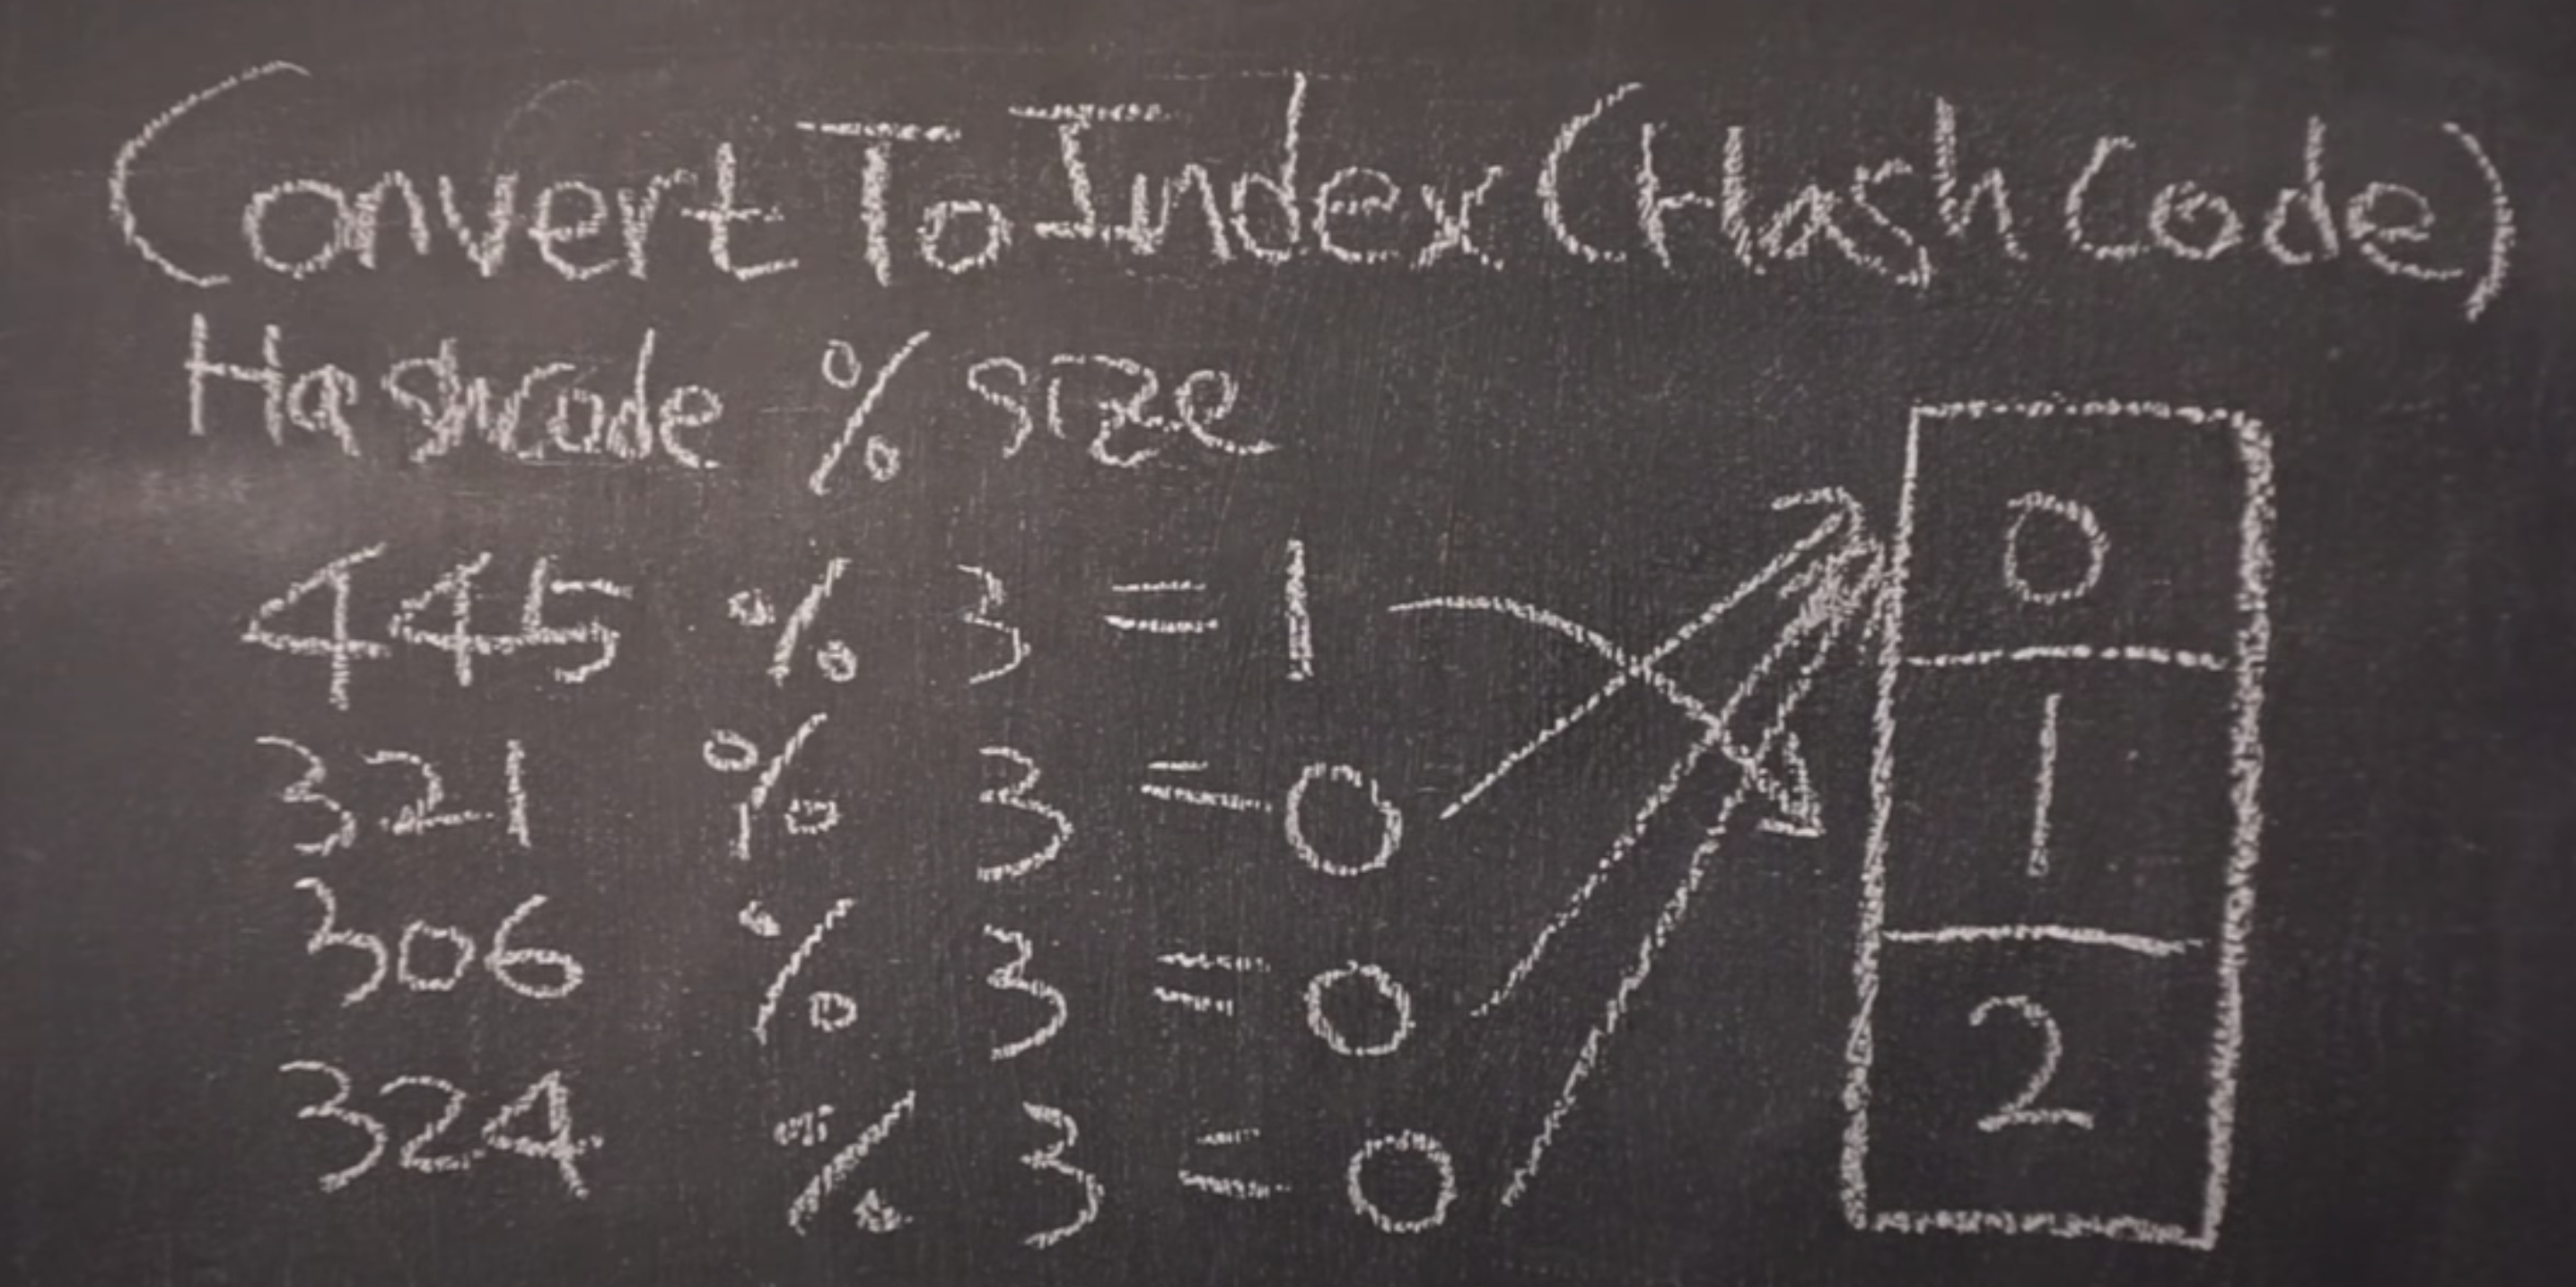 ConvertToIndex(HashCode)
Hashcode % size
445 % 3 = 1
321 % 3 = 0
306 % 3 = 0
324 % 3 = 0
0
1
2